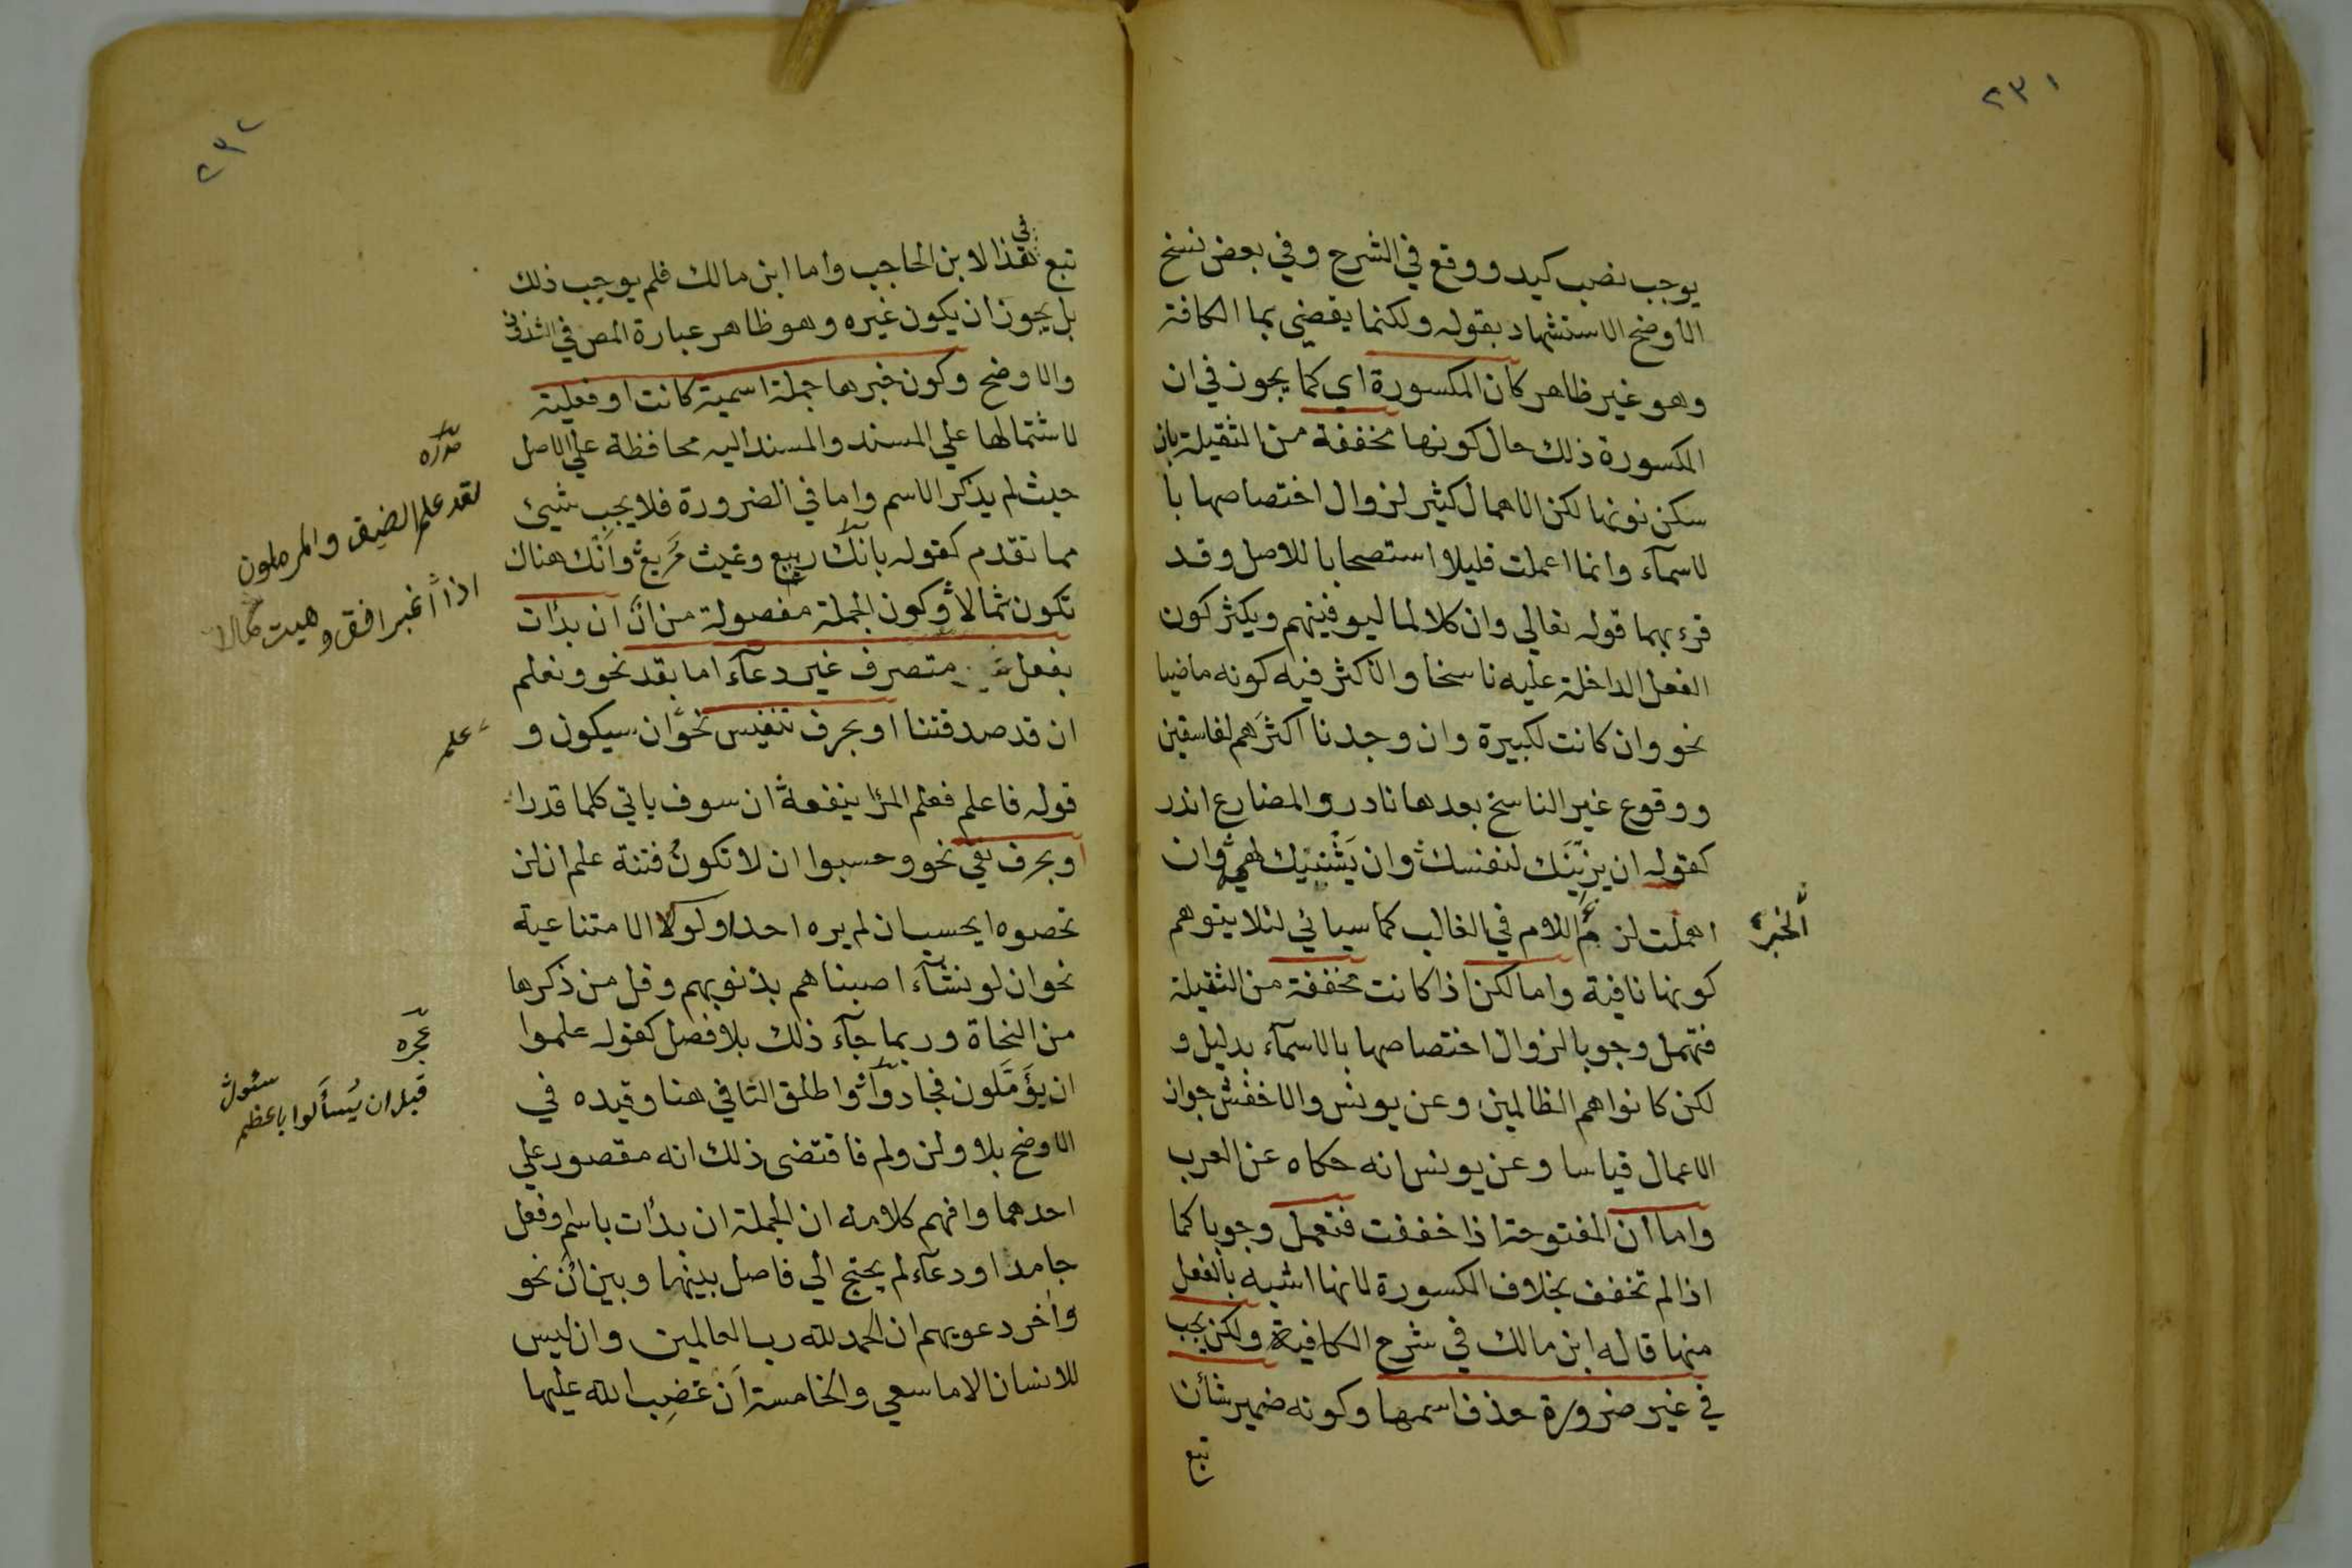 ٢٣١
يوجب نصب كيد ووقع في الشرح وفي بعض نسخ
الأوضح الاستشهاد بقوله ولكنما يقضي بما الكافة
وهو غير ظاهر كان المكسورة اي كما يجوز في ان
المكسورة ذلك حال كونها مخففة من الثقيلة بان
سكن نونها لكن الاهمال كثير لزوال اختصاصها با
لاسمآء وانما اعملت قليلا استصحابا للاصل وقد
قرء بهما قوله تعالي وان كلا لما ليوفينهم ويكثر كون
الفعل الداخلة عليه ناسخا والاكثر فيه كونه ماضيا
نحو وان كانت لكبيرة وان وجدنا اكثرهم لفاسقين
ووقوع غير الناسخ بعدها نادر والمضارع اندر
كقوله ان يزينَك لنفسك وان يَشْينك لهيه وان
اهملت لزم اللام في الغالب كما سيأتي لئلا يتوهم
الخبر
كونها نافية واما لكن اذا كانت مخففة من الثقيلة
فتهمل وجوبا لزوال اختصاصها بالاسمآء بدليل و
لكن كانوا هم الظالمين وعن يونس والاخفش جواز
الاعمال قياسا وعن يونس انه حكاه عن العرب
واما ان المفتوحة اذا خففت فتعمل وجوبا كما
اذا لم تخفف بخلاف المكسورة لانها اشبه بالفعل
منها قاله ابن مالك في شرح الكافية ولكن يجب
في غير ضرورة حذف اسمها وكونه ضمير شأن
تبع
٢٣٢
تبع في هذا لابن الحاجب واما ابن مالك فلم يوجب ذلك
بل يجوز ان يكون غيره وهو ظاهر عبارة المص في
والاوضح وكون خبرها جملة اسمية كانت او فعلية
لاشتمالها علي المسند والمسند اليه محافظة علي الاصل
حيث لم يذكر الاسم واما في الضرورة فلا يجب شيئ
مما تقدم كقوله بانك ربيع وغيث مَريع وانك هناك
تكون ثمالا وكون الجملة مفصولة من انْ ان بدأت
بفعل متصرف غير دعآء اما بقد نحو ونعلم
ان قد صدقتنا او بحرف تنفيس نحو ان سيكون و
علم
قوله فاعلم فعلم المرا ينفعه ان سوف ياتي كلما قدرا
او بحرف نفي نحو وحسبوا ان لا تكونُ فتنة علم ان لن
تحصوه ايحسب ان لم يره احد او لو كلا الامتناعية
نحو ان لو نشآء اصبناهم بذنوبهم وقل من ذكرها
من النحاة وربما جآء ذلك بلا فصل كقوله علموا
ان يؤَمَّلون فجادوا واطلق النافي هنا وقيده في
الاوضح بلا ولن ولم فاقتضى ذلك انه مقصور علي
احدهما وافهم كلامه ان الجملة ان بدأت باسم وفعل
جامد او دعآء لم يحتج الي فاصل بينها وبين ان نحو
وآخر دعويهم ان الحمد لله رب العالمين وان ليس
للانسان الا ما سعي والخامسة ان غضب الله عليها
صدره
لقد علم الضيف والمرملون
اذا اغبر افق وهبت شمالا
عجزه
قبل ان يُسألوا باعظم سئول